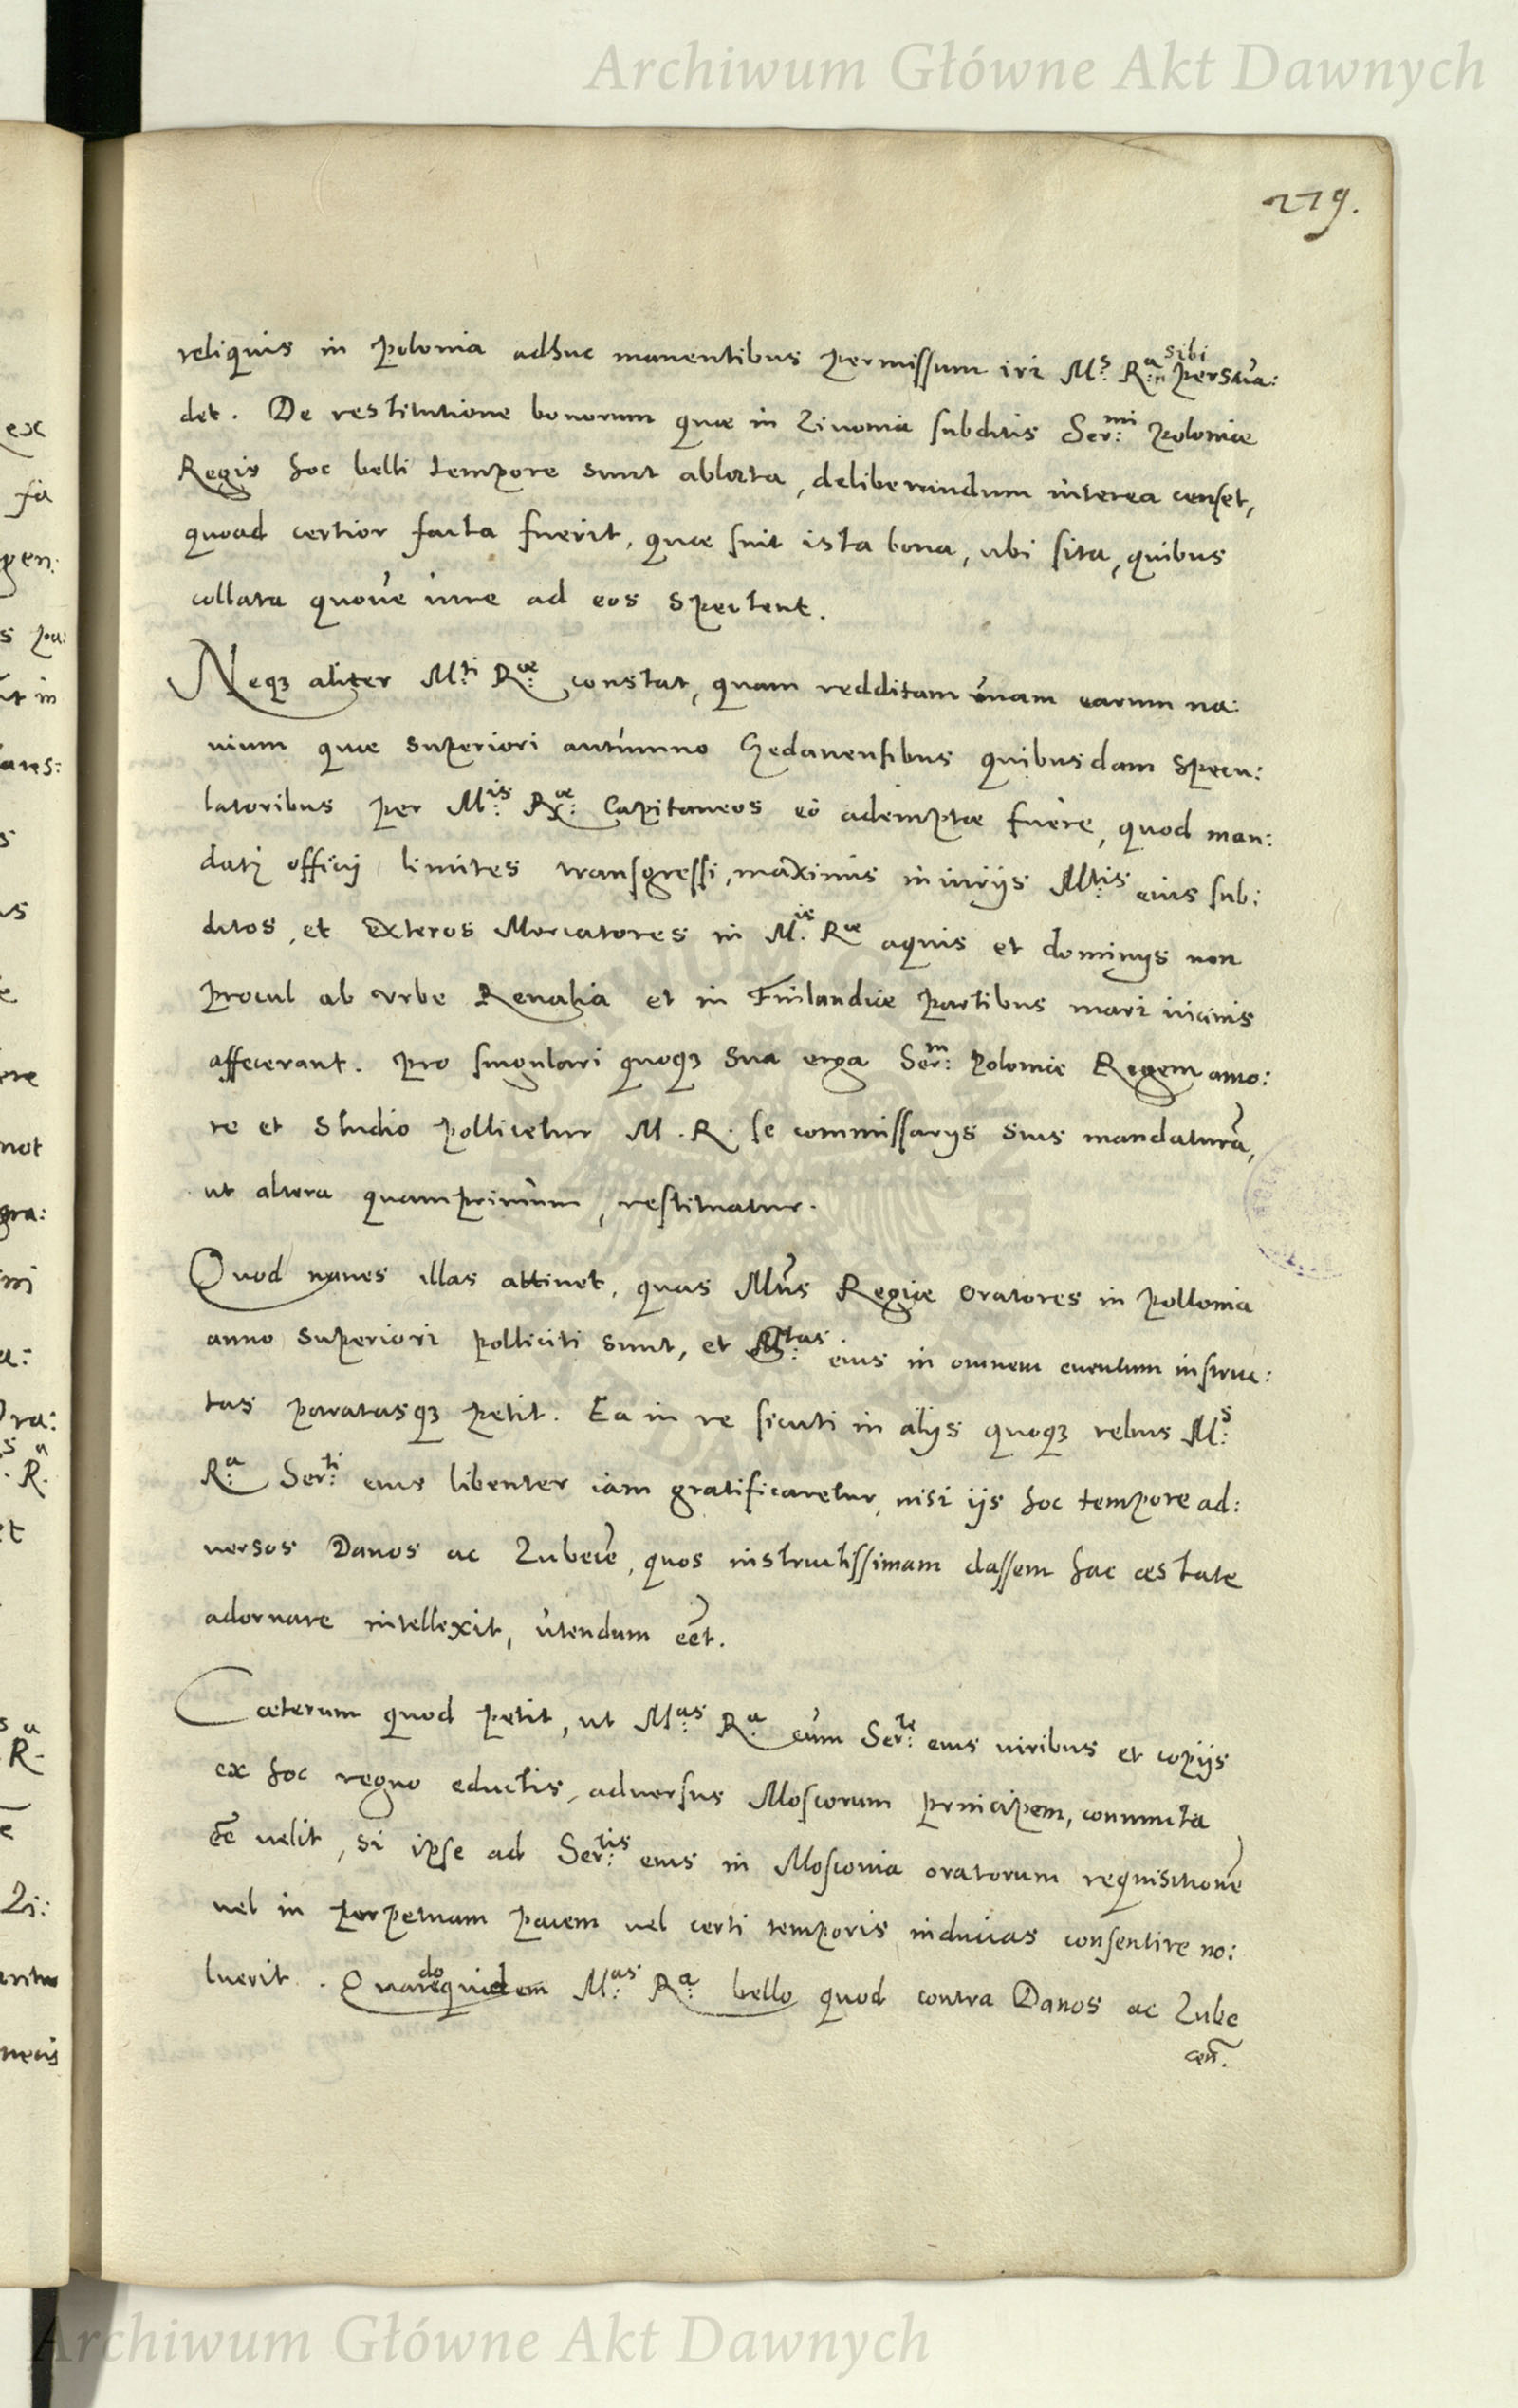 Archiwum Główne Akt Dawnych
219.
reliquis in Polonia adhuc manentibus permissum iri M:s R:a sibi persua:
det. De restitutione bonorum quæ in Livonia subditis Ser:mi Poloniæ
Regis hoc belli tempore sunt ablata, deliberandum interea censet,
quoad certior facta fuerit, quæ sint ista bona, ubi sita, quibus
collata quove iure ad eos spectent.
Neqz aliter M:ti R:æ constat, quam redditam unam earum na:
uium quæ superiori autumno Gedanensibus quibusdam specu:
latoribus per M:is R:æ Capitaneos eo ademptæ fuere, quod man:
dati officij limites transgressi, maximis iniurijs M:tis eius sub:
ditos, et exteros Mercatores in M:is Ræ aquis et dominijs non
procul ab urbe Reualia et in Finlandiæ partibus mari uicinis
affecerant. Pro singulari quoqz sua erga Ser:m Poloniæ Regem amo:
re et studio pollicetur M. R. se commissarijs suis mandaturā,
ut altera quamprimum, restituatur.
Quod naues illas attinet, quas Mtis Regiæ Oratores in Pollonia
anno superiori polliciti sunt, et M:tas eius in omnem euentum instruc:
tas paratasqz petit. Ea in re sicuti in alijs quoqz rebus M:s
R:a Ser:ti eius libenter iam gratificaretur, nisi ijs hoc tempore ad:
uersos Danos ac Lubecē, quos instructissimam classem hac æstate
adornare intellexit, utendum eēt.
Cæterum quod petit, ut M:as R:a cum Ser:te eius uiribus et copijs
ex hoc regno eductis, aduersus Moscorum principem, coniuncta
eē uelit, si ipse ad Ser:tis eius in Mosconia oratorum requisitionē
uel in perpetuam pacem uel certi temporis inducias consentire no:
luerit. Quandoquidem M:as R:a bello quod contra Danos ac Lube
ceñ.
Archiwum Główne Akt Dawnych